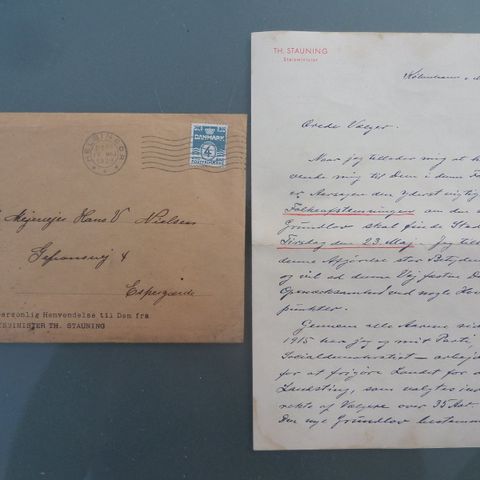 HELSINGØR
DANMARK
4
Mejeriejer Hans V Nielsen
Gefionsvej 4
Espergærde
ersonlig Henvendelse til Dem fra
TSMINISTER TH. STAUNING
TH. STAUNING
Statsminister
København
Ærede Vælger.
Naar jeg tillader mig at h
vende mig til Dem i denne F
er Aarsagen den yderst vigtig
Folkeafstemningen om den
Grundlov skal finde Sted
Tirsdag den 23. Maj. Jeg till
denne Afgørelse stor Betyden
og vil ad denne Vej fæste D
Opmærksomhed ved nogle Hov
punkter.
Gennem alle Aarene sid
1915 har jeg og mit Parti,
Socialdemokratiet - arbejd
for at frigøre Landet for
Landsting, som vælges
rekte af Vælgere over 35 Aar.
Den nye Grundlov bestemm